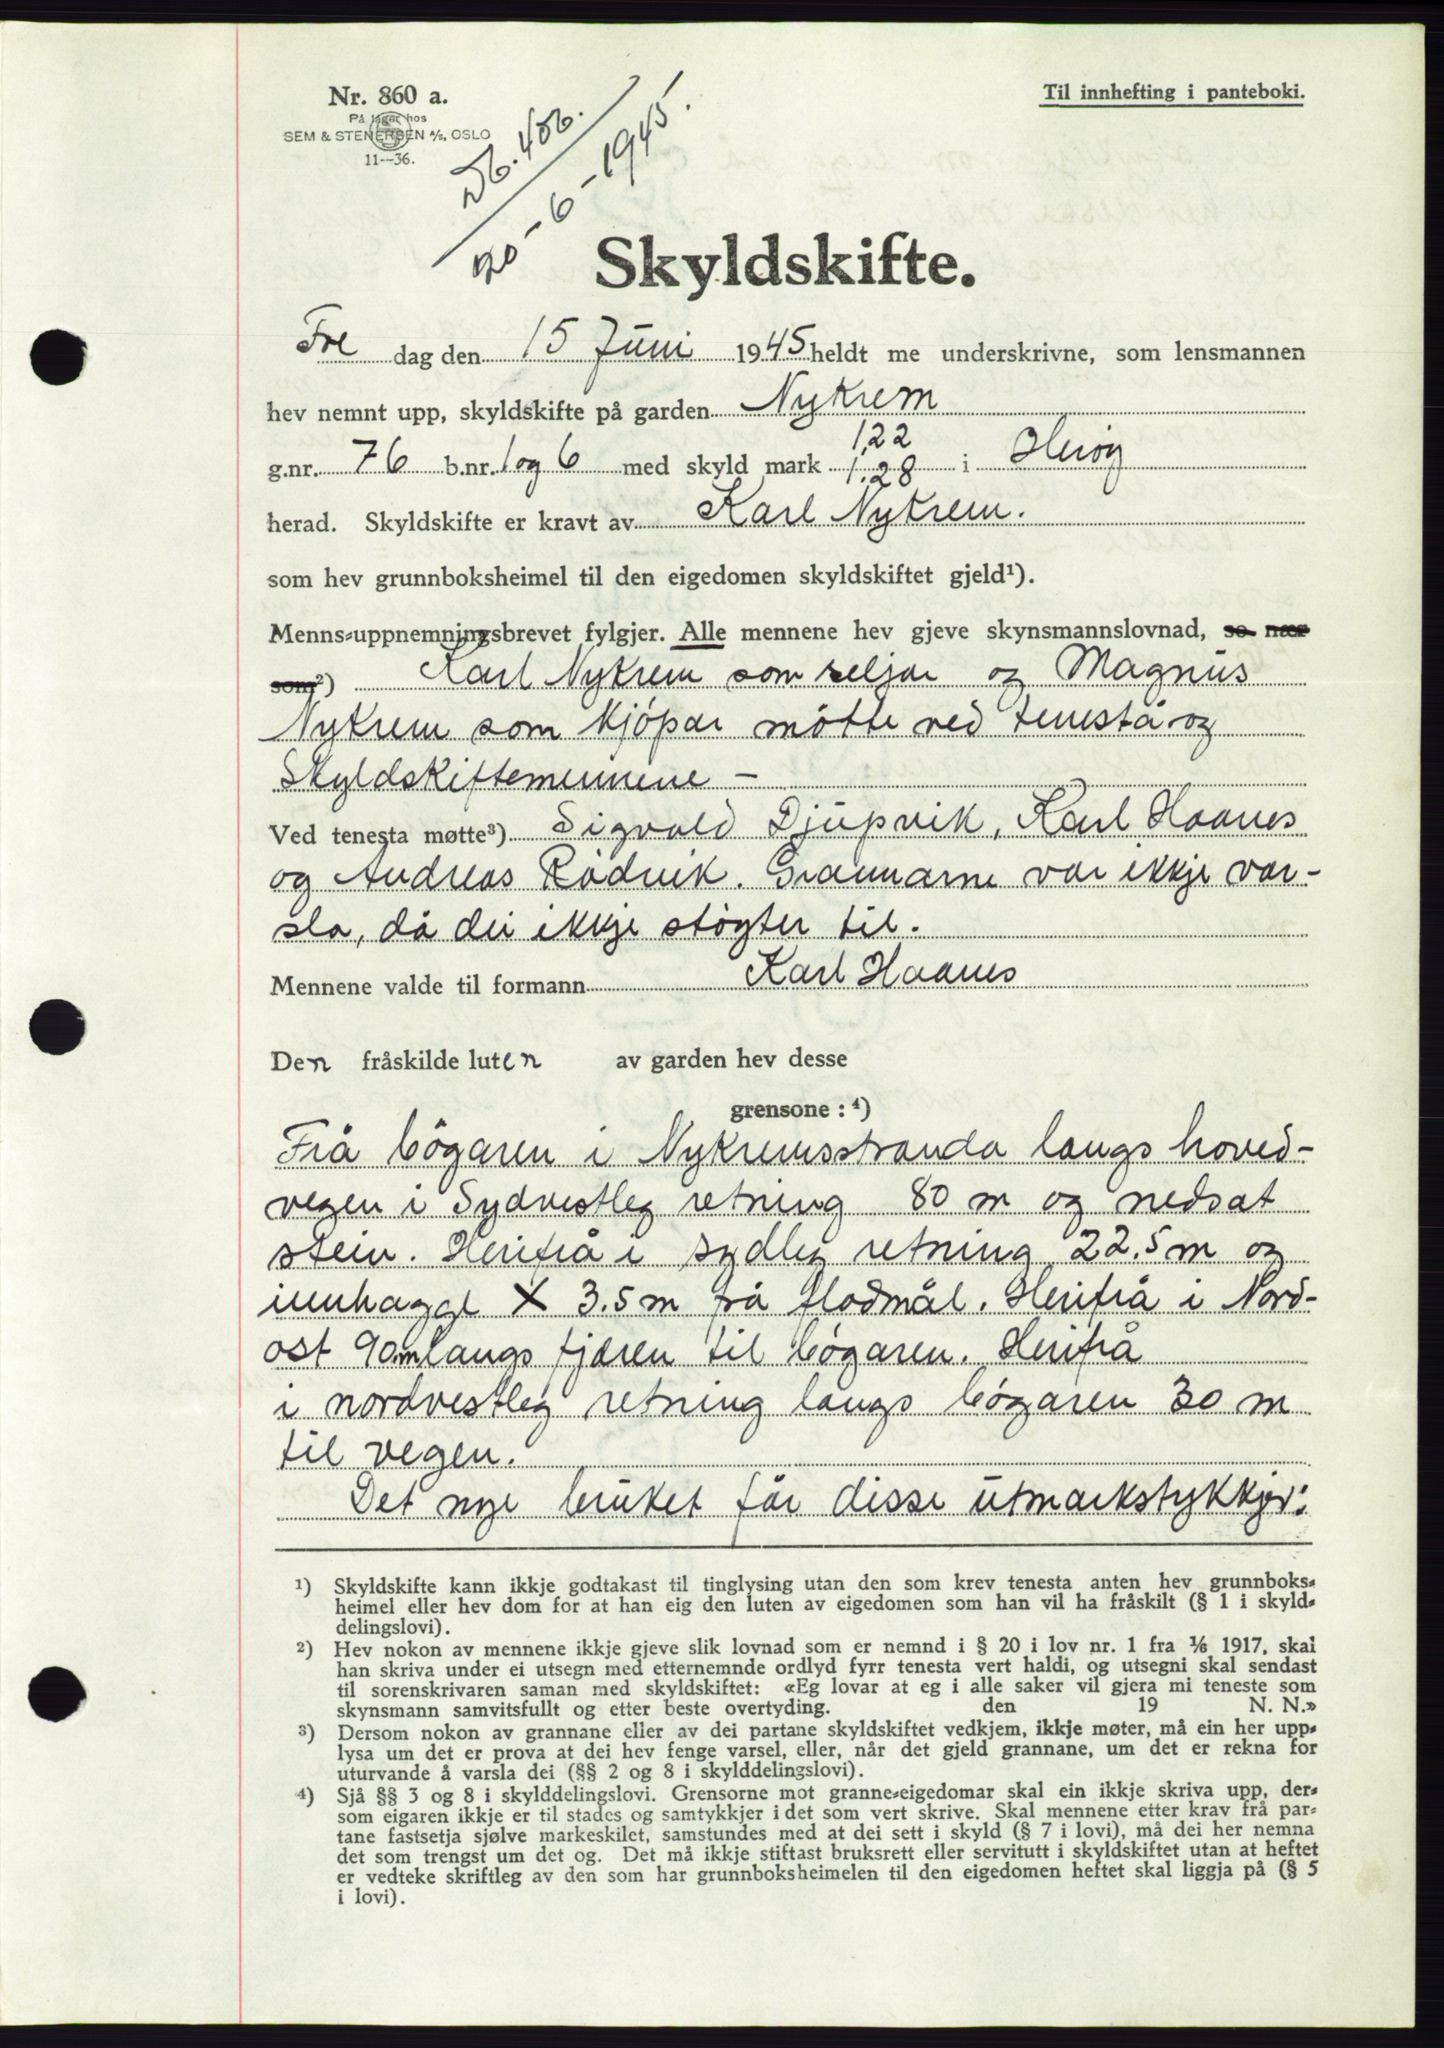 Nr. 860 a.
På lager hos
SEM & STENERSEN A/S, OSLO
11--36.
Til innhefting i panteboki.
Db. 406.
20-6-1945.
Skyldskifte.
Fre dag den 15 Juni 1945 heldt me underskrivne, som lensmannen
hev nemnt upp, skyldskifte på garden Nykrem
1,22
g.nr. 76 b.nr. 1 og 6 med skyld mark 1.28 i Herøy
herad. Skyldskifte er kravt av Karl Nykrem.
som hev grunnboksheimel til den eigedomen skyldskiftet gjeld¹).
Menns-uppnemningsbrevet fylgjer. Alle mennene hev gjeve skynsmannslovnad, so nær
som²) Karl Nykrem som seljar og Magnus
Nykrem som kjöpar mötte ved tenesta og
Skyldskiftemennene -
Ved tenesta møtte³) Sigvald Djupvik, Karl Haanes
og Andreas Rødvik. Grannarne var ikkje var-
sla, då dei ikkje støyter til.
Mennene valde til formann Karl Haanes
Den fråskilde luten av garden hev desse
grensone: ⁴)
Frå bögaren i Nykremsstranda langs hoved-
vegen i Sydvestleg retning 80 m og nedsat
stein. Herifrå i sydleg retning 22.5 m og
innhaggt X 3.5 m frå flodmål. Herifrå i Nord-
ost 90m langs fjæren til bögaren. Herifrå
i nordvestleg retning langs bögaren 30 m
til vegen.
Det nye bruket får disse utmarkstykkjer:
¹) Skyldskifte kann ikkje godtakast til tinglysing utan den som krev tenesta anten hev grunnboks-
heimel eller hev dom for at han eig den luten av eigedomen som han vil ha fråskilt (§ 1 i skyld-
delingslovi).
²) Hev nokon av mennene ikkje gjeve slik lovnad som er nemnd i § 20 i lov nr. 1 fra 1/6 1917, skal
han skriva under ei utsegn med etternemnde ordlyd fyrr tenesta vert haldi, og utsegni skal sendast
til sorenskrivaren saman med skyldskiftet: «Eg lovar at eg i alle saker vil gjera mi teneste som
skynsmann samvitsfullt og etter beste overtyding. den 19 N. N.»
³) Dersom nokon av grannane eller av dei partane skyldskiftet vedkjem, ikkje møter, må ein her upp-
lysa um det er prova at dei hev fenge varsel, eller, når det gjeld grannane, um det er rekna for
uturvande å varsla dei (§§ 2 og 8 i skylddelingslovi).
⁴) Sjå §§ 3 og 8 i skylddelingslovi. Grensorne mot granne-eigedomar skal ein ikkje skriva upp, der-
som eigaren ikkje er til stades og samtykkjer i det som vert skrive. Skal mennene etter krav frå par-
tane fastsetja sjølve markeskilet, samstundes med at dei sett i skyld (§ 7 i lovi), må dei her nemna
det som trengst um det og. Det må ikkje stiftast bruksrett eller servitutt i skyldskiftet utan at heftet
er vedteke skriftleg av den som har grunnboksheimelen til den eigedomen heftet skal liggja på (§ 5
i lovi).